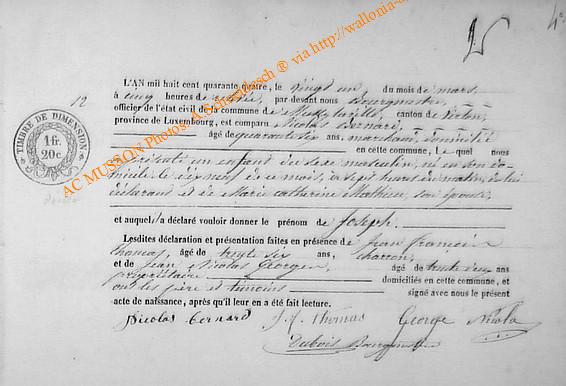 12
TIMBRE DE DIMENSION
1 fr.
20 c.
AC MUSSON Photos: A.Schandersch ® via http://wallonia-
L'AN mil huit cent quarante quatre, le vingt un du mois de mars
à cinq heures de relevée, par devant nous Bourgmestre,
officier de l'état civil de la commune de canton de Virton,
province de Luxembourg, est comparu Nicolas Bernard,
âgé de quarante six ans, domicilié
en cette commune, Lequel nous
a présenté un enfant du sexe masculin, né en son domicile le dix neuf de ce mois, à sept heures du matin, de lui
déclarant et de Marie Catherine Mathieu, son épouse,
et auquel il a déclaré vouloir donner le prénom de Joseph.
Lesdites déclaration et présentation faites en présence de jean françois
thomas, âgé de trente six ans, charron,
et de Jean Nicolas Georges, âgé de trente deux ans
propriétaire domiciliés en cette commune, et
ont les père et témoins signé avec nous le présent
acte de naissance, après qu'il leur en a été fait lecture.
Nicolas Bernard J. f. thomas George Nicola
Dubois Bourgmestre